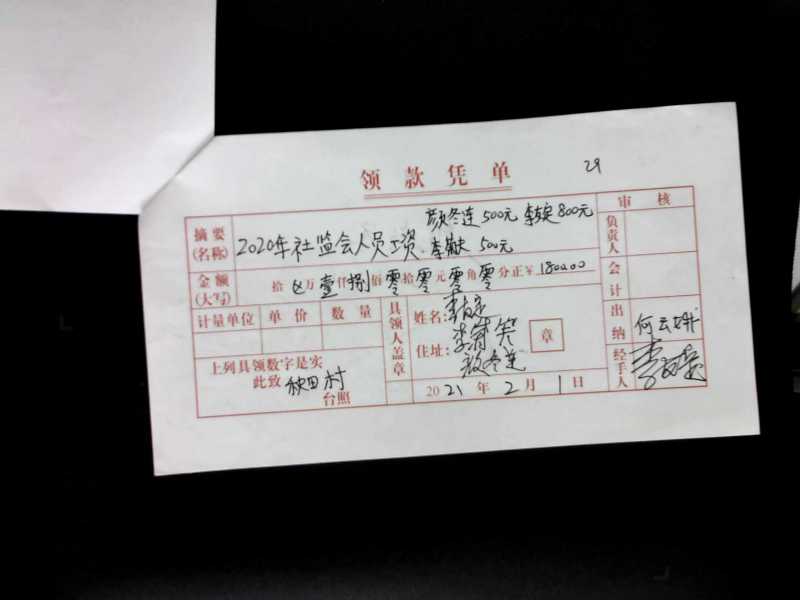 29
领款凭单
颜冬连 500元 李定 800元
摘要(名称) 2020年社监会人员工资. 李 500元
金额(大写) 拾 万壹仟捌佰零拾零元零角零分正¥1800.00
计量单位 单价 数量
具领人盖章
姓名:李
住址:李
颜冬连
章
上列具领数字是实
此致 秧田村
台照
2021年2月1日
审核
负责人
会计
出纳 何云
经手人 李